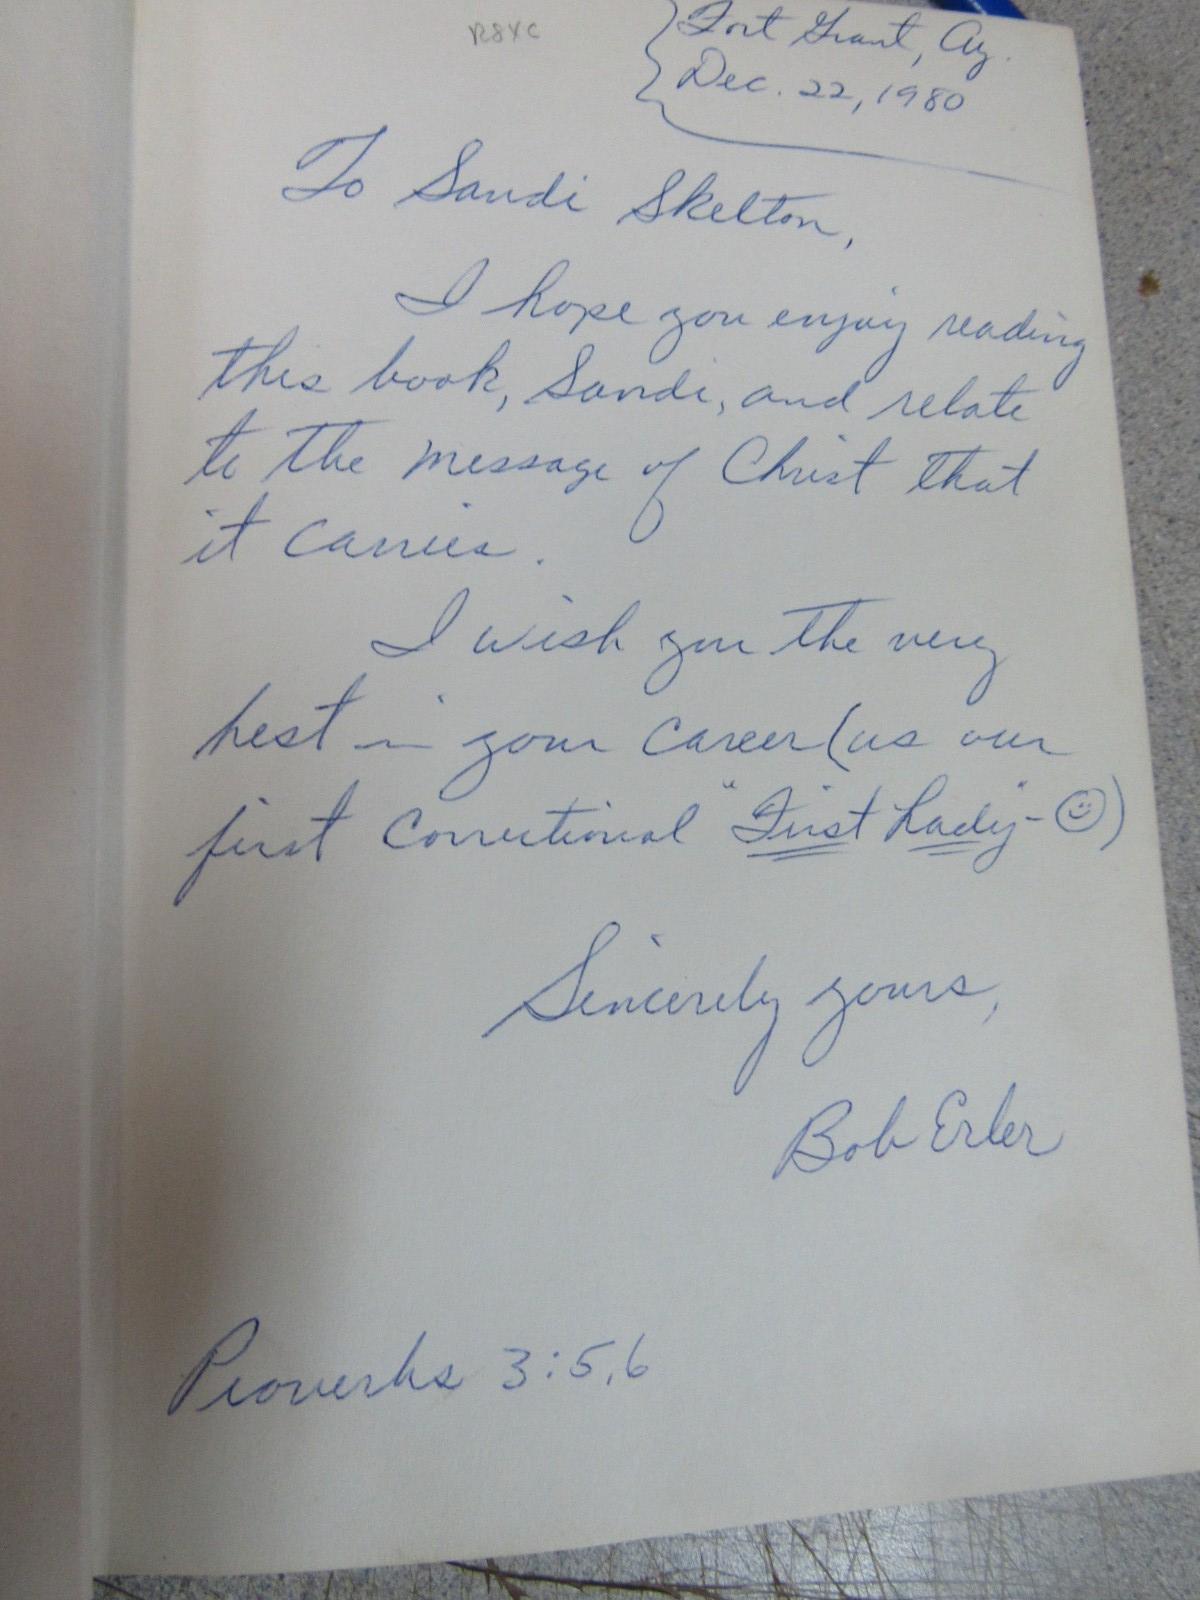 R8XC
Fort Grant, Az.
Dec. 22, 1980
To Sandi Skelton,
I hope you enjoy reading
this book, Sandi, and relate
to the message of Christ that
it carries.
I wish you the very
best in your career (as our
first correctional "First Lady" - ☺)
Sincerely yours,
Bob Erler
Proverbs 3:5,6